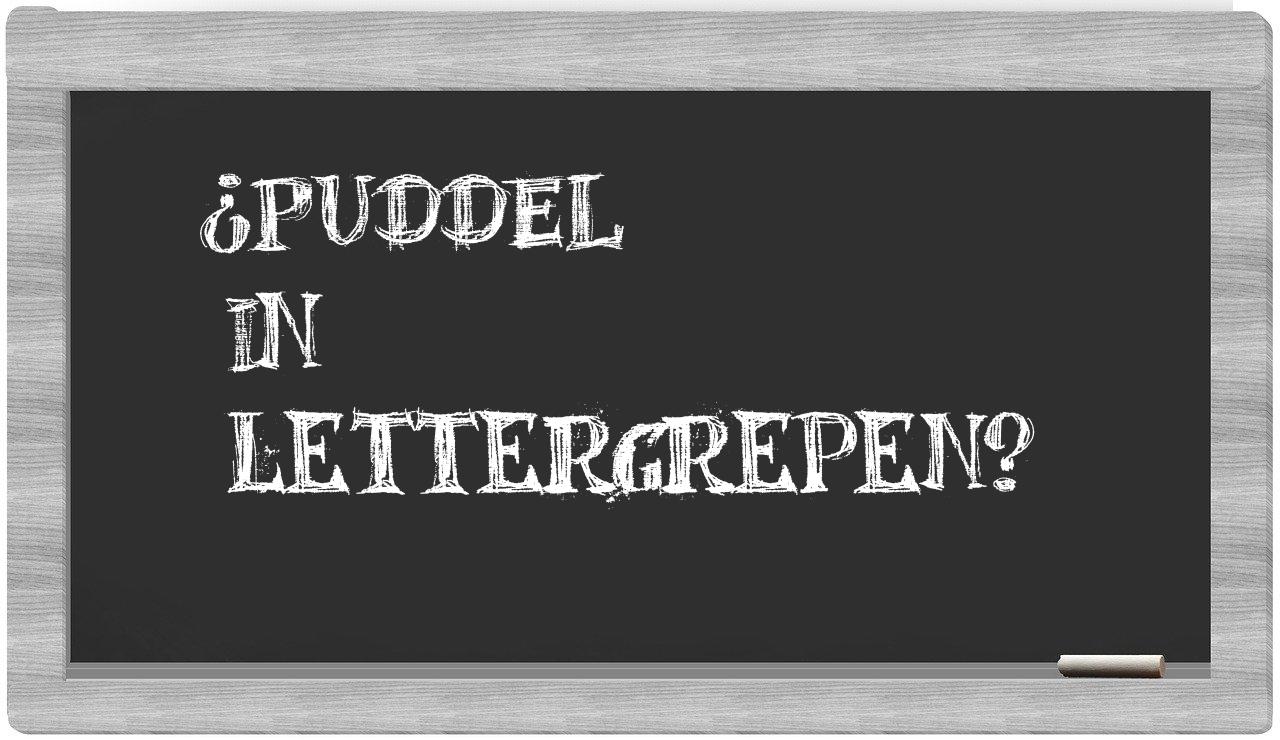 ¿PUDDEL
IN
LETTERGREPEN?